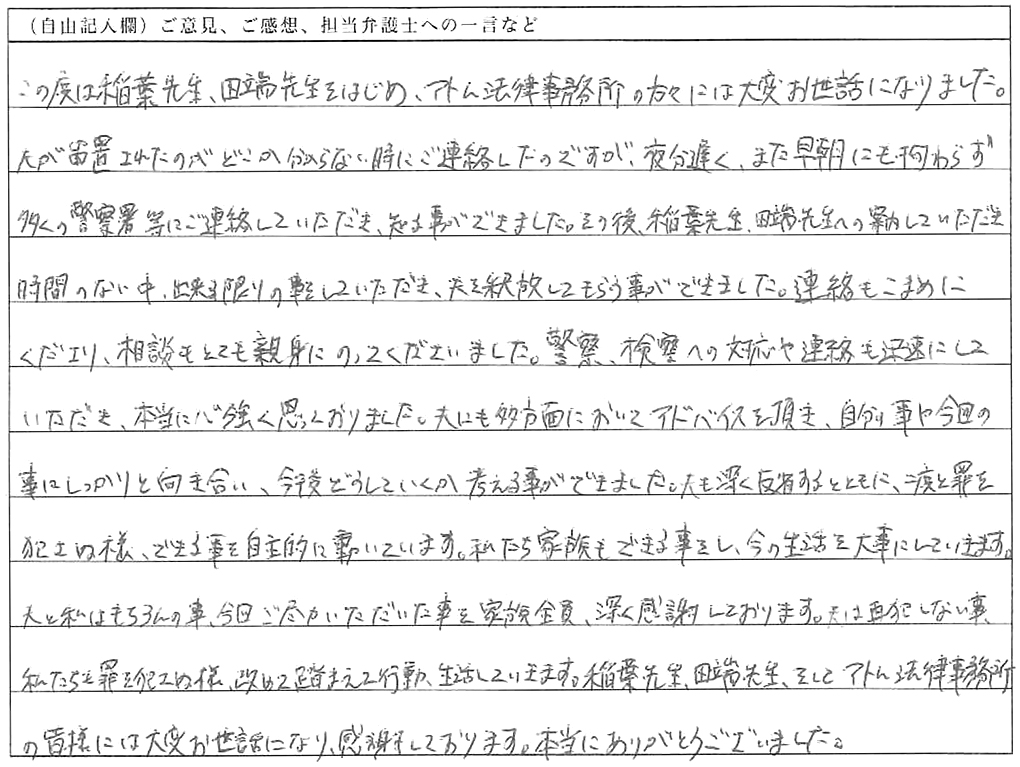 （自由記入欄）ご意見、ご感想、担当弁護士への一言など
この度は稲葉先生、田端先生をはじめ、アトム法律事務所の方々には大変お世話になりました。
夫が留置されたのがどこか分からない時にご連絡したのですが、夜分遅く、また早朝にも拘わらず
多くの警察署等にご連絡していただき、知る事ができました。その後、稲葉先生、田端先生への案内していただき
時間のない中、出来る限りの事をしていただき、夫を釈放してもらう事ができました。連絡もこまめに
くださり、相談もとても親身にのってくださいました。警察、検察への対応や連絡も迅速にして
いただき、本当に心強く思っておりました。夫にも多方面においてアドバイスを頂き、自分の事や今回の
事にしっかりと向き合い、今後どうしていくか考える事ができました。夫も深く反省するとともに、二度と罪を
犯さぬ様、できる事を自主的に動いています。私たち家族もできる事をし、今の生活を大事にしていきます。
夫と私はもちろんの事、今回ご尽力いただいた事を家族全員、深く感謝しております。夫は再犯しない事、
私たちも罪を犯さぬ様、改めて踏まえて行動、生活していきます。稲葉先生、田端先生、そしてアトム法律事務所
の皆様には大変お世話になり、感謝しております。本当にありがとうございました。